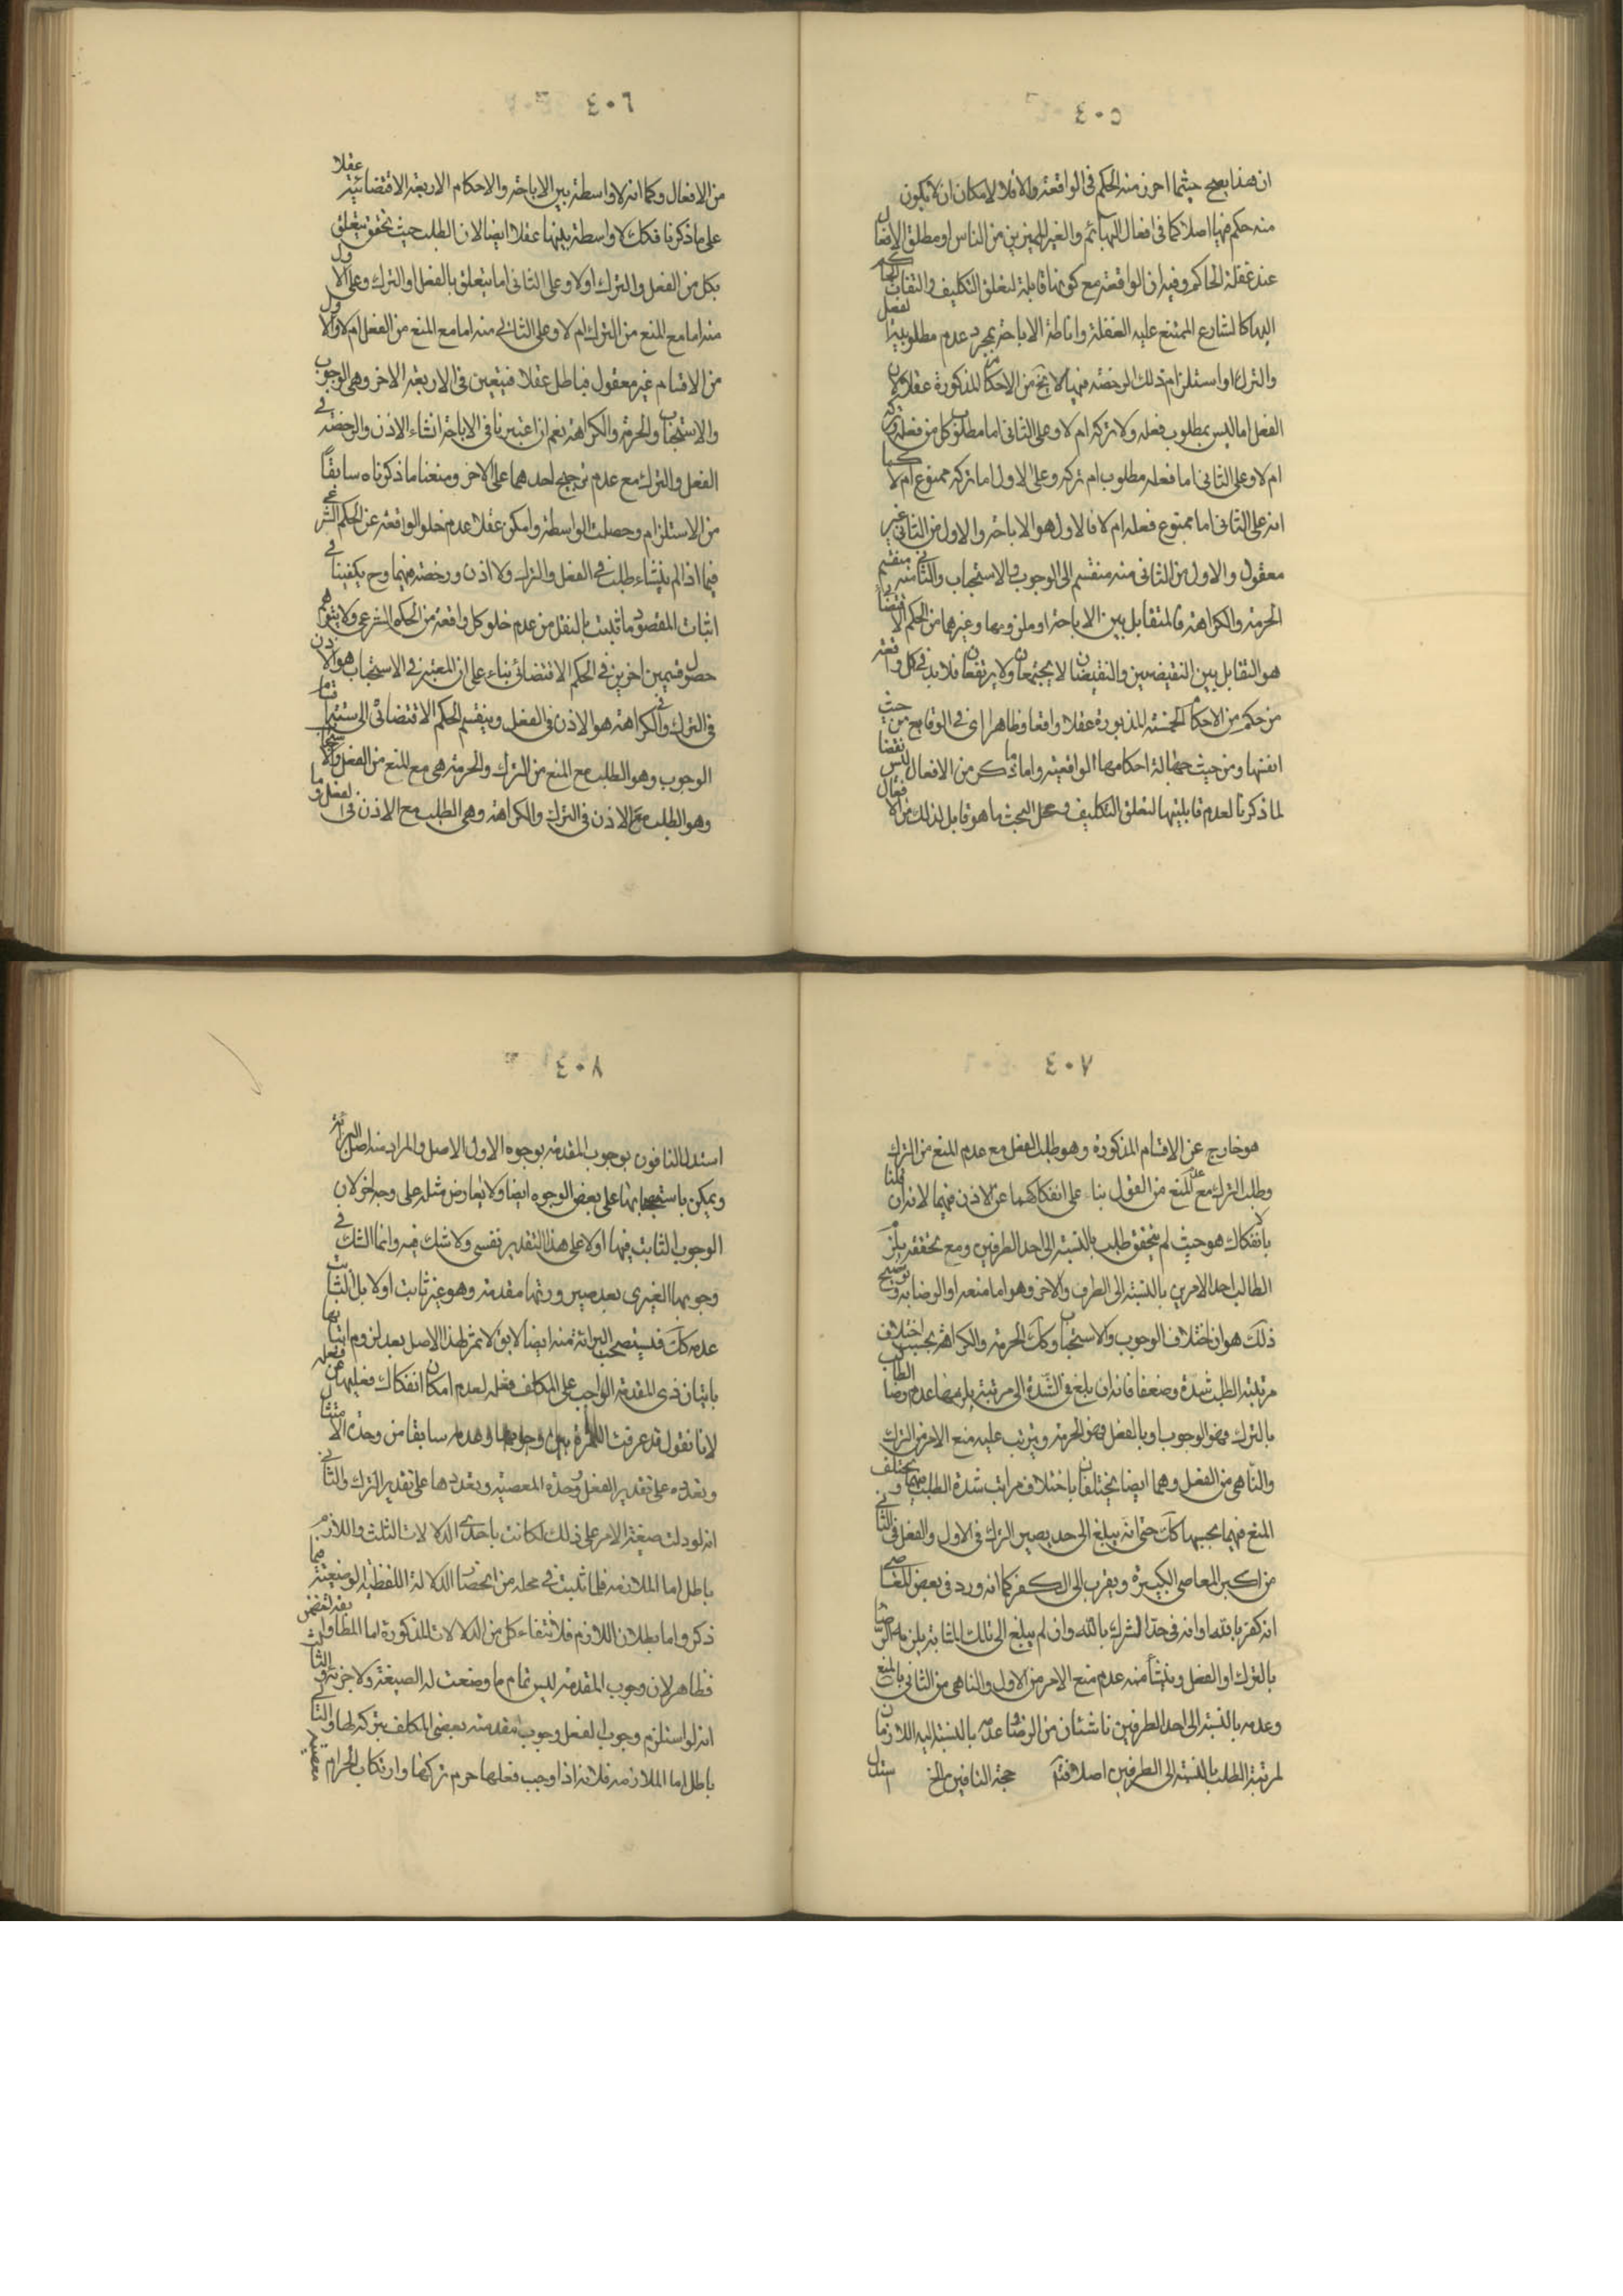 ٤٠٥
ان هذا يصح حيثما احرز منه الحكم فى الواقعة والا فلا لامكان ان لا يكون
منه حكم فيها اصلا كما فى افعال البهائم والغير المميزين من الناس او مطلق الافعال
عند غفلة الحاكم وفيه ان الواقعة مع كونها قابلة لتعلق التكليف والتفات الحاكم
اليها كالشارع الممتنع عليه الغفلة واناطة الاباحة بمجرد عدم مطلوبية الفعل
والترك او استلزام ذلك الرخصة فيها لا يخ من الاحكام المذكورة عقلا لان
الفعل اما ليس بمطلوب فعله ولا تركه ام لا وعلى الثانى اما مطلوب كل من فعله وتركه
ام لا وعلى الثانى اما فعله مطلوب ام تركه وعلى الاول اما تركه ممنوع ام لا كما
انه على الثانى اما ممنوع فعله ام لا فالاول هو الاباحة والاول من الثانى غير
معقول والاول من الثانى منه منقسم الى الوجوب والاستحباب والثانى منه منقسم
الحرمة والكراهة فالمتقابل بين الاباحة او ملزومها وغيرها من الحكم الاقتضاء
هو التقابل بين النقيضين والنقيضان لا يجتمعان ولا يرتفعان فلا بد فى كل واقعة
من حكم من الاحكام الخمسة المذبورة عقلا واقعا وظاهرا اى فى الوقايع من حيث
انفسها ومن حيث جهالة احكامها الواقعية واما ما ذكر من الافعال ليس نقضا
لما ذكرنا لعدم قابليتها لتعلق التكليف ومحل البحث ما هو قابل لذلك من الافعال
٤٠٦
من الافعال وكما انه لا واسطة بين الاباحة والاحكام الاربعة الاقتضائية عقلا
على ما ذكرنا فكك لا واسطة بينها عقلا ايضا لان الطلب حيث تحقق يتعلق
بكل من الفعل والترك اولا وعلى الثانى اما يتعلق بالفعل او الترك وعلى الاول
منه اما مع المنع من الترك ام لا وعلى الثانى منه اما مع المنع من الفعل ام لا والاول
من الاقسام غير معقول فباطل عقلا فيتعين فى الاربعة الاخر وهى الوجوب
والاستحباب والحرمة والكراهة نعم ان اعتبرنا فى الاباحة انشاء الاذن والرخصة فى
الفعل والترك مع عدم ترجيح احدهما على الاخر ومنعنا ما ذكرناه سابقاً
من الاستلزام وحصلت الواسطة وامكن عقلا عدم خلو الواقعة عن الحكم الشرعى
فيما اذا لم ينشاء طلب فى الفعل والترك ولا اذن ورخصة فيهما وح يكفينا فى
اثبات المقصود ما ثبت بالنقل من عدم خلو كل واقعة من الحكم الشرعى ولا يتوهم
حصول قسمين اخرين فى الحكم الاقتضائى بناء على ان المعتبر فى الاستحباب هو الاذن
فى الترك وفى الكراهة هو الاذن فى الفعل وينقسم الحكم الاقتضائى الى ستة اقسام
الوجوب وهو الطلب مع المنع من الترك والحرمة هى مع المنع من الفعل والاستحباب
وهو الطلب مع الاذن فى الترك والكراهة وهى الطلب مع الاذن فى الفعل وما
٤٠٧
هو خارج عن الاقسام المذكورة وهو طلب الفعل مع عدم المنع من الترك
وطلب الترك مع عدم المنع من الفعل بناء على انفكاكهما عن الاذن فيهما لانه ان قلنا
بانفكاك هو حيث لم يتحقق طلب بالنسبة الى احد الطرفين ومع تحققه يلزم
الطالب احد الامرين بالنسبة الى الطرف والاخر وهو اما منعه او الرضا به وتوضيح
ذلك هو ان اختلاف الوجوب والاستحباب وكك الحرمة والكراهة بحسب اختلاف
مرتبة الطلب شدة وضعفا فانه ان بلغ فى الشدة الى مرتبة يلزمها عدم رضا الطالب
بالترك فهو الوجوب او بالفعل فهو الحرمة ويترتب عليه منع الامر من الترك
والناهى من الفعل وهما ايضا يختلفان باختلاف مراتب شدة الطلب فيهما ويختلف
المنع فيهما بحسبها كك حتى انه يبلغ الى حد يصير الترك فى الاول والفعل فى الثانى
من اكبر المعاصى الكبيرة ويقرب الى الكفر كما انه ورد فى بعض المعاصى
انه كفر بالله او انه فى حد الشرك بالله وان لم يبلغ الى تلك المثابة يلزمه الرضا
بالترك او الفعل وينشأ منه عدم منع الامر من الاول والناهى من الثانى فالمنع
وعدمه بالنسبة الى احد الطرفين ناشئان من الرضا وعدمه بالنسبة اليه اللازمان
لمرتبة الطلب بالنسبة الى الطرفين اصلا فتم حجة النافين مالخ استدل
٤٠٨
استدل النافون بوجوب المقدمة بوجوه الاول الاصل والمراد منه اصل البرائة
ويمكن باستصحابها على بعض الوجوه ايضا ولا يعارض مثله على وجه اخر لان
الوجوب الثابت فيها اولا على هذا التقدير نفسى ولا شك فيه وانما الشك فى
وجوبها الغيرى بعد صيرورتها مقدمة وهو غير ثابت اولا بل الثابت
عدمه كك فليستصحب البرائة منه ايضا لا يق لا ثمر لهذا الاصل بعد لزوم اتيانها
باتيان ذى المقدمة الواجب على المكلف فعله لعدم امكان انفكاك فعلها عن فعله
لانا نقول قد عرفت الثمرة بين وجوبها وعدمه سابقا من وحدة الامتثال
وتعدده على تقدير الفعل ووحدة المعصية وتعددها على تقدير الترك والثانى
انه لو دلت صيغة الامر على ذلك لكانت باحدى الدلالات الثلث واللازم
باطل اما الملازمة فلما ثبت فى محله من انحصار الدلالة اللفظية الوضعية فيما
ذكر واما بطلان اللازم فلانتفاء كل من الدلالات المذكورة اما المطابقة والتضمن
فظاهر لان وجوب المقدمة ليس تمام ما وضعت له الصيغة ولا جزئه والثالث
انه لو استلزم وجوب الفعل وجوب مقدمته يعصى المكلف بتركه لها والتالى
باطل اما الملازمة فلانه اذا وجب فعلها حرم تركها وارتكاب الحرام معصية